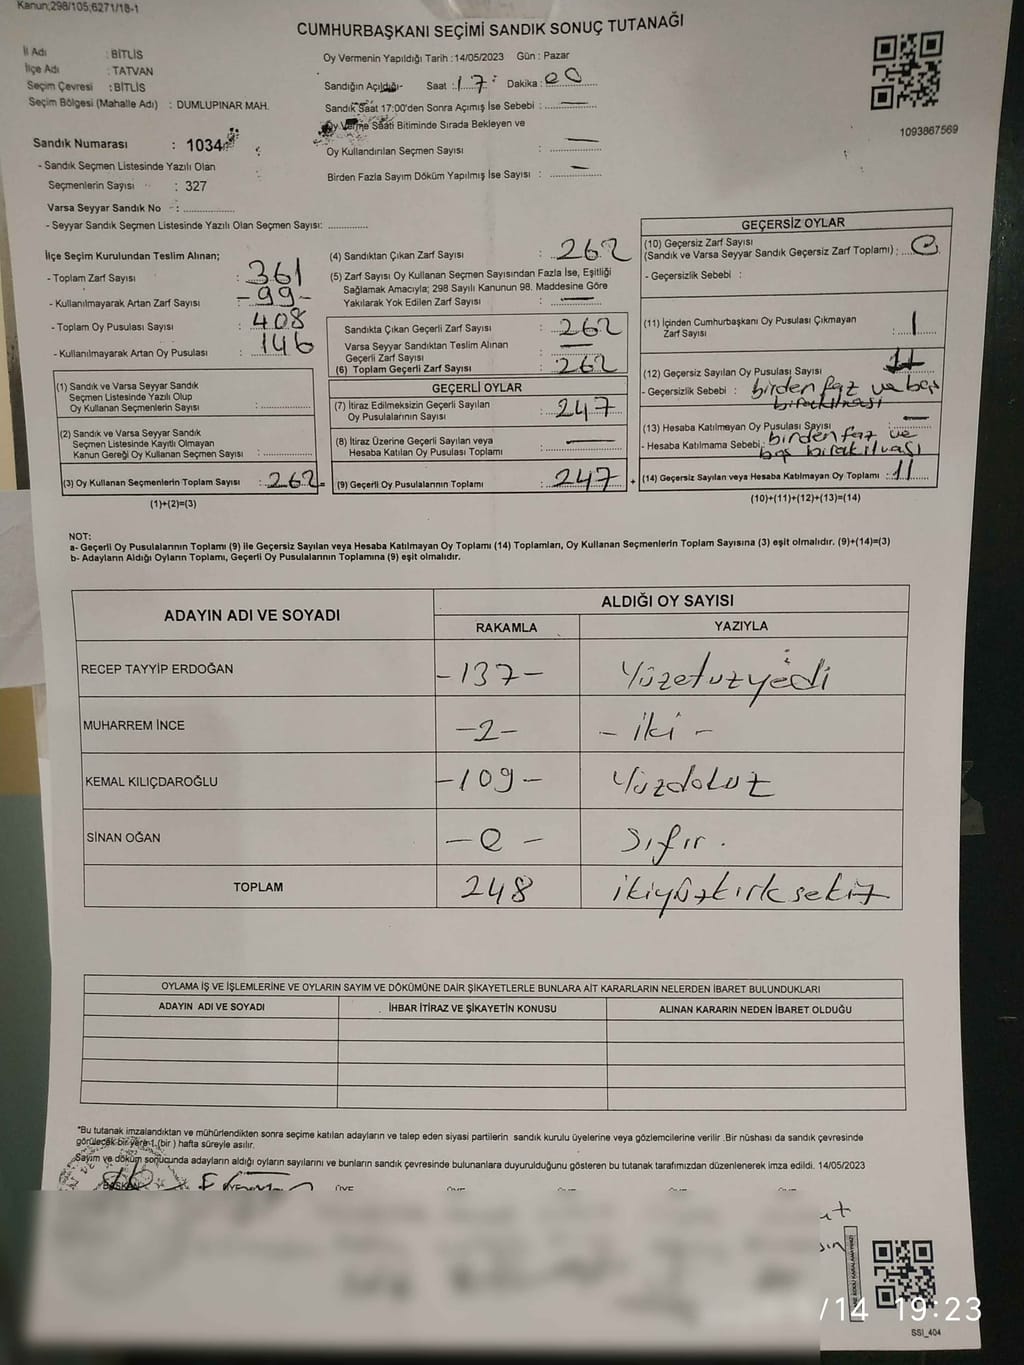 Kanun;298/105;6271/18-1
CUMHURBAŞKANI SEÇİMİ SANDIK SONUÇ TUTANAĞI
İl Adı : BİTLİS
İlçe Adı : TATVAN
Seçim Çevresi : BİTLİS
Seçim Bölgesi (Mahalle Adı) : DUMLUPINAR MAH.
Sandık Numarası : 1034
- Sandık Seçmen Listesinde Yazılı Olan
Seçmenlerin Sayısı : 327
Varsa Seyyar Sandık No :
- Seyyar Sandık Seçmen Listesinde Yazılı Olan Seçmen Sayısı:
Oy Vermenin Yapıldığı Tarih :14/05/2023 Gün : Pazar
Sandığın Açıldığı- Saat : 17: Dakika : 00
Sandık Saat 17:00'den Sonra Açımış İse Sebebi : —
Oy Verme Saati Bitiminde Sırada Bekleyen ve
Oy Kullandırılan Seçmen Sayısı : —
Birden Fazla Sayım Döküm Yapılmış İse Sayısı : —
1093867569
İlçe Seçim Kurulundan Teslim Alınan;
- Toplam Zarf Sayısı : 361
- Kullanılmayarak Artan Zarf Sayısı : -99-
- Toplam Oy Pusulası Sayısı : 408
- Kullanılmayarak Artan Oy Pusulası : 146
(1) Sandık ve Varsa Seyyar Sandık
Seçmen Listesinde Yazılı Olup
Oy Kullanan Seçmenlerin Sayısı :
(2) Sandık ve Varsa Seyyar Sandık
Seçmen Listesinde Kayıtlı Olmayan
Kanun Gereği Oy Kullanan Seçmen Sayısı :
(3) Oy Kullanan Seçmenlerin Toplam Sayısı : 262 =
(1)+(2)=(3)
(4) Sandıktan Çıkan Zarf Sayısı : 262
(5) Zarf Sayısı Oy Kullanan Seçmen Sayısından Fazla İse, Eşitliği
Sağlamak Amacıyla; 298 Sayılı Kanunun 98. Maddesine Göre
Yakılarak Yok Edilen Zarf Sayısı : —
Sandıkta Çıkan Geçerli Zarf Sayısı : 262
Varsa Seyyar Sandıktan Teslim Alınan
Geçerli Zarf Sayısı : —
(6) Toplam Geçerli Zarf Sayısı : 262
GEÇERLİ OYLAR
(7) İtiraz Edilmeksizin Geçerli Sayılan
Oy Pusulalarının Sayısı : 247
(8) İtiraz Üzerine Geçerli Sayılan veya
Hesaba Katılan Oy Pusulası Toplamı : —
(9) Geçerli Oy Pusulalarının Toplamı : 247 +
GEÇERSİZ OYLAR
(10) Geçersiz Zarf Sayısı
(Sandık ve Varsa Seyyar Sandık Geçersiz Zarf Toplamı) : 0
- Geçersizlik Sebebi :
(11) İçinden Cumhurbaşkanı Oy Pusulası Çıkmayan
Zarf Sayısı : 1
(12) Geçersiz Sayılan Oy Pusulası Sayısı : 11
- Geçersizlik Sebebi : birden faz ve boş
bırakılması
(13) Hesaba Katılmayan Oy Pusulası Sayısı : —
- Hesaba Katılmama Sebebi : birden faz ve
boş bırakılması
(14) Geçersiz Sayılan veya Hesaba Katılmayan Oy Toplamı : 11
(10)+(11)+(12)+(13)=(14)
NOT:
a- Geçerli Oy Pusulalarının Toplamı (9) ile Geçersiz Sayılan veya Hesaba Katılmayan Oy Toplamı (14) Toplamları, Oy Kullanan Seçmenlerin Toplam Sayısına (3) eşit olmalıdır. (9)+(14)=(3)
b- Adayların Aldığı Oyların Toplamı, Geçerli Oy Pusulalarının Toplamına (9) eşit olmalıdır.
ADAYIN ADI VE SOYADI ALDIĞI OY SAYISI
RAKAMLA YAZIYLA
RECEP TAYYİP ERDOĞAN -137- Yüzotuzyedi
MUHARREM İNCE -2- - iki -
KEMAL KILIÇDAROĞLU -109- Yüzdokuz
SİNAN OĞAN -0- Sıfır.
TOPLAM 248 ikiyüzkırksekiz
OYLAMA İŞ VE İŞLEMLERİNE VE OYLARIN SAYIM VE DÖKÜMÜNE DAİR ŞİKAYETLERLE BUNLARA AİT KARARLARIN NELERDEN İBARET BULUNDUKLARI
ADAYIN ADI VE SOYADI İHBAR İTİRAZ VE ŞİKAYETİN KONUSU ALINAN KARARIN NEDEN İBARET OLDUĞU
"Bu tutanak imzalandıktan ve mühürlendikten sonra seçime katılan adayların ve talep eden siyasi partilerin sandık kurulu üyelerine veya gözlemcilerine verilir .Bir nüshası da sandık çevresinde
görülecek bir yere 1 (bir ) hafta süreyle asılır.
Sayım ve döküm sonucunda adayların aldığı oyların sayılarını ve bunların sandık çevresinde bulunanlara duyurulduğunu gösteren bu tutanak tarafımızdan düzenlenerek imza edildi. 14/05/2023
BAŞKAN
/14 19:23
SSI_404